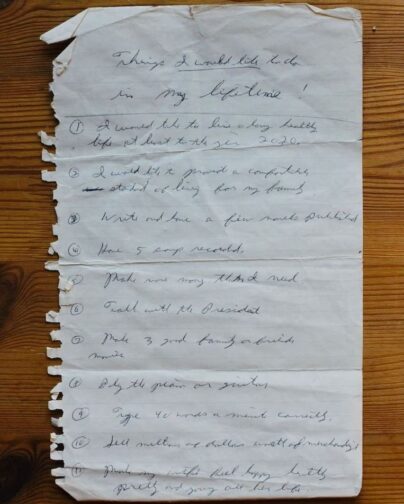 Things I would like to do
in my lifetime!
① I would like to live a long healthy
life at least to the year 2020.
② I would like to provid a comfortable
of living for my family
③ Write and have a few novels published
④ Have 5 songs recorded.
⑤ Make more mony than I need
⑥ Talk with the President
⑦ Make 3 good family
movies
⑧ Play the piano or guitar
⑨ Type 40 words a minute correctly.
⑩ Sell millions of dollars worth of
⑪ Make my wife feel happy
pretty and young all her life.